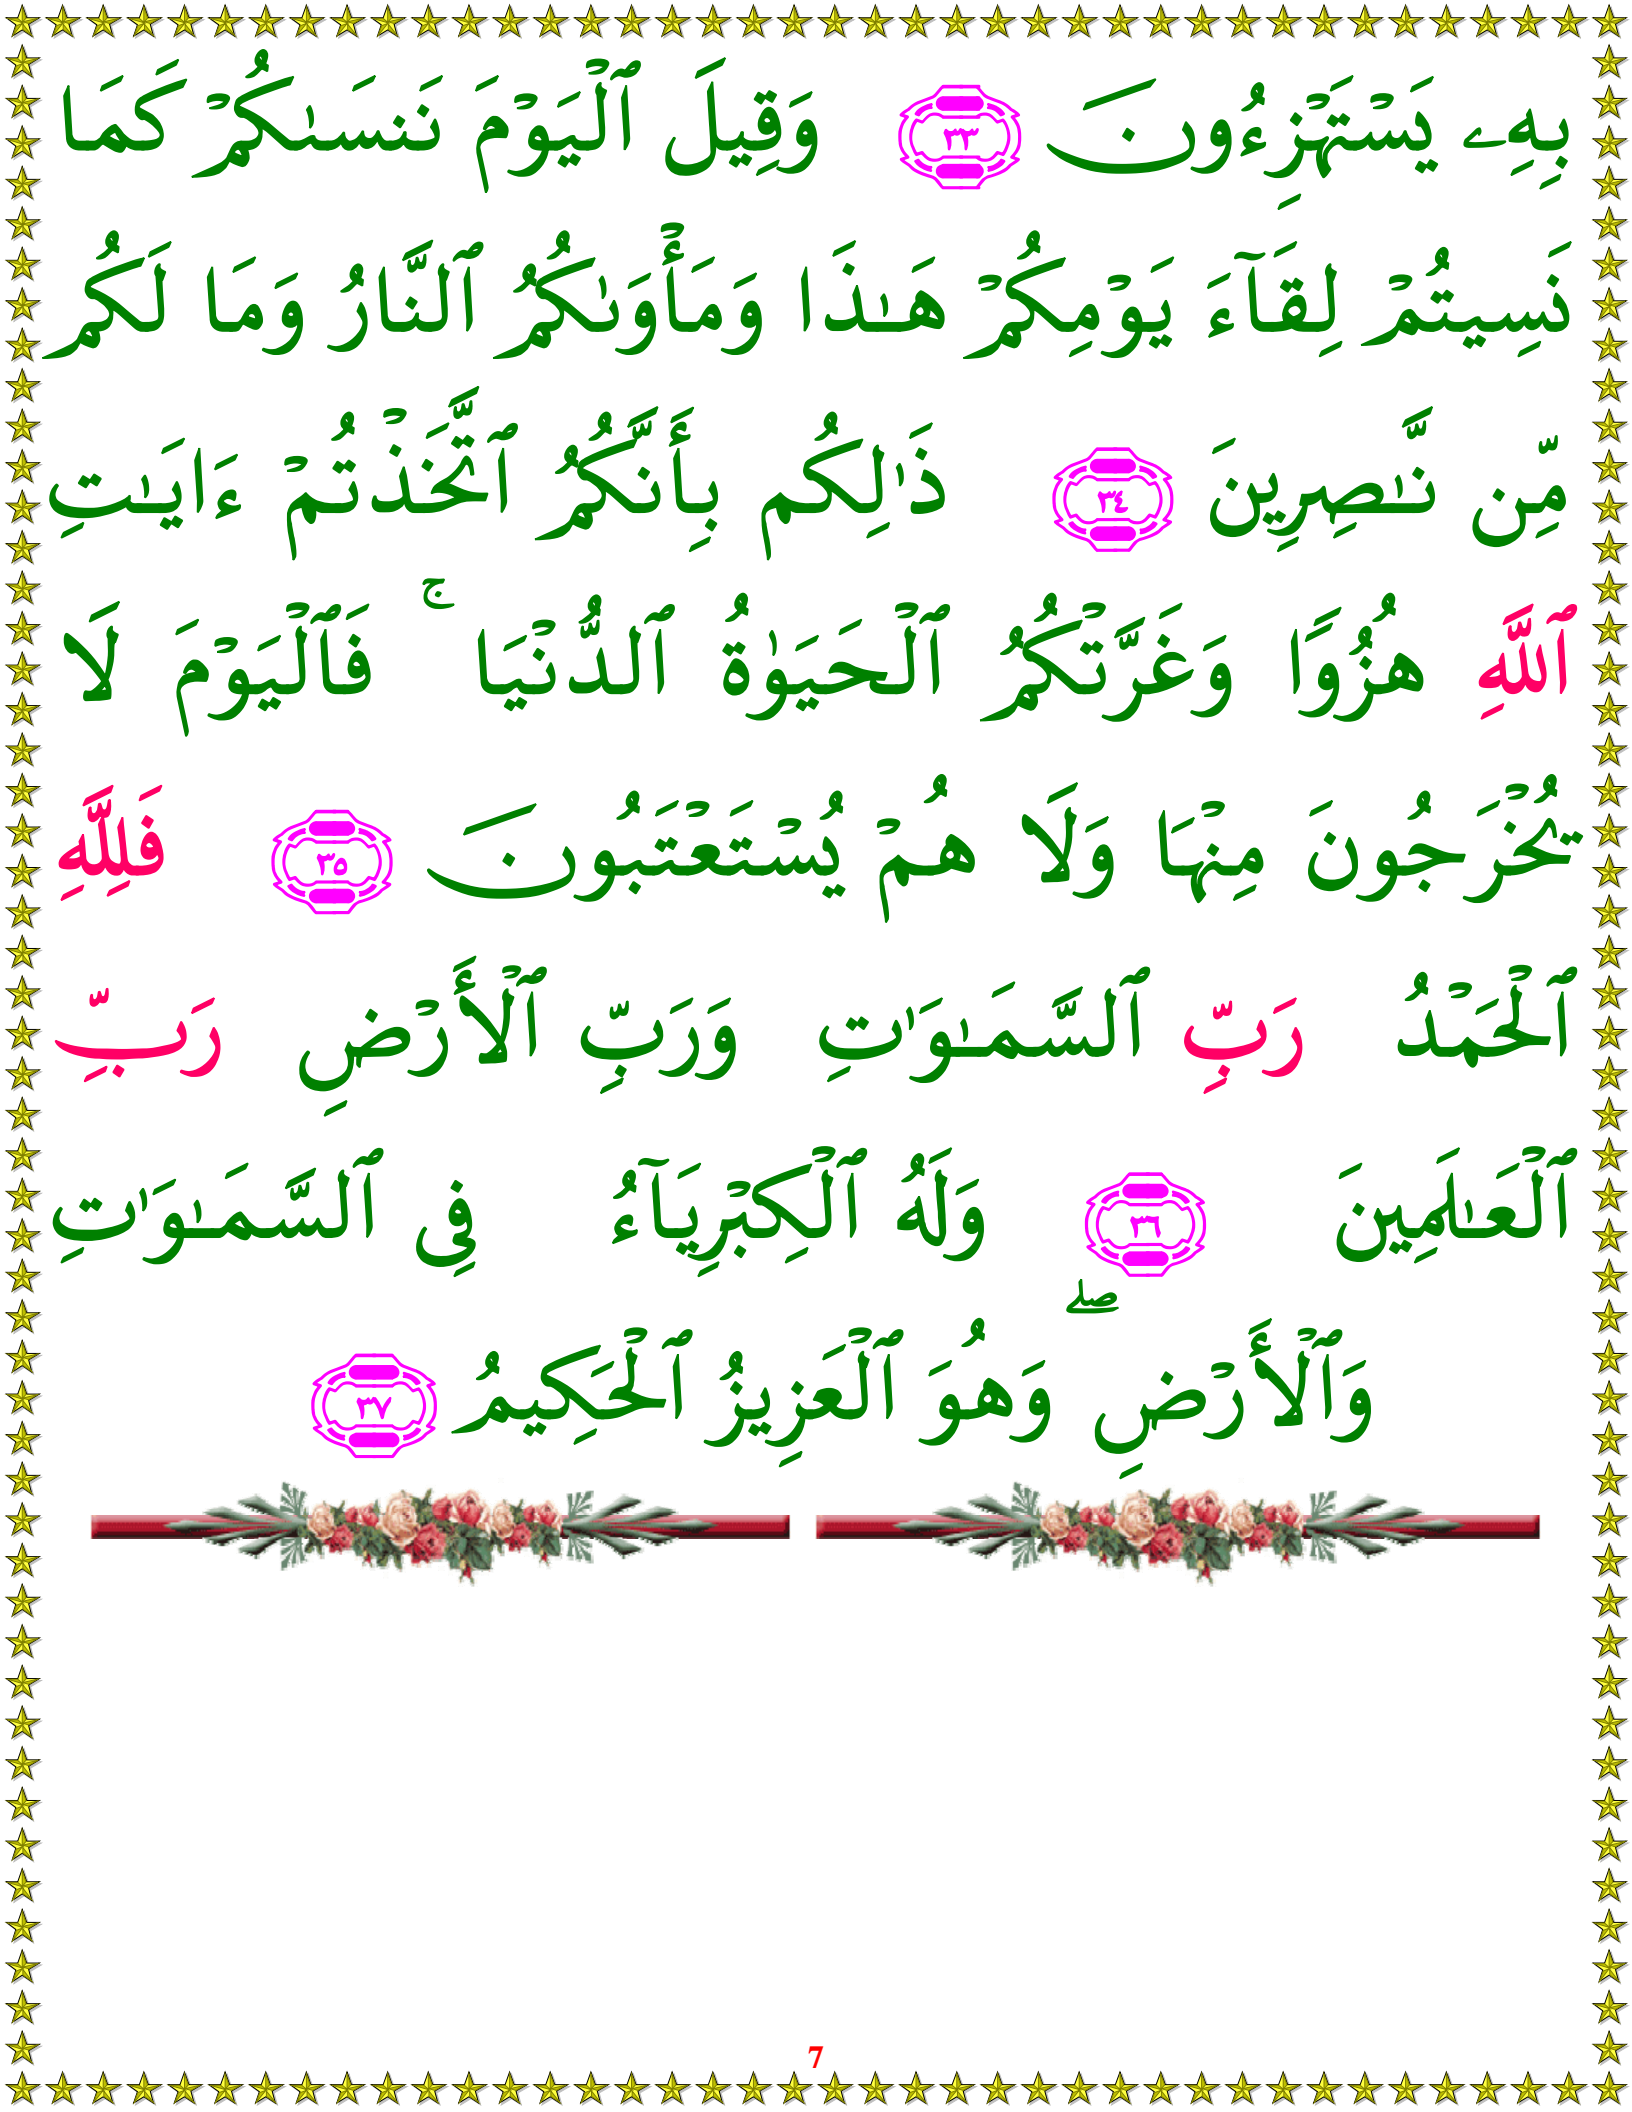 بِهِۦ يَسْتَهْزِءُونَ ٣٣ وَقِيلَ ٱلْيَوْمَ نَنسَىٰكُمْ كَمَا
نَسِيتُمْ لِقَآءَ يَوْمِكُمْ هَـٰذَا وَمَأْوَىٰكُمُ ٱلنَّارُ وَمَا لَكُم
مِّن نَّـٰصِرِينَ ٣٤ ذَٰلِكُم بِأَنَّكُمُ ٱتَّخَذْتُمْ ءَايَـٰتِ
ٱللَّهِ هُزُوًا وَغَرَّتْكُمُ ٱلْحَيَوٰةُ ٱلدُّنْيَا ۚ فَٱلْيَوْمَ لَا
يُخْرَجُونَ مِنْهَا وَلَا هُمْ يُسْتَعْتَبُونَ ٣٥ فَلِلَّهِ
ٱلْحَمْدُ رَبِّ ٱلسَّمَـٰوَٰتِ وَرَبِّ ٱلْأَرْضِ رَبِّ
ٱلْعَـٰلَمِينَ ٣٦ وَلَهُ ٱلْكِبْرِيَآءُ فِى ٱلسَّمَـٰوَٰتِ
وَٱلْأَرْضِ ۖ وَهُوَ ٱلْعَزِيزُ ٱلْحَكِيمُ ٣٧
7